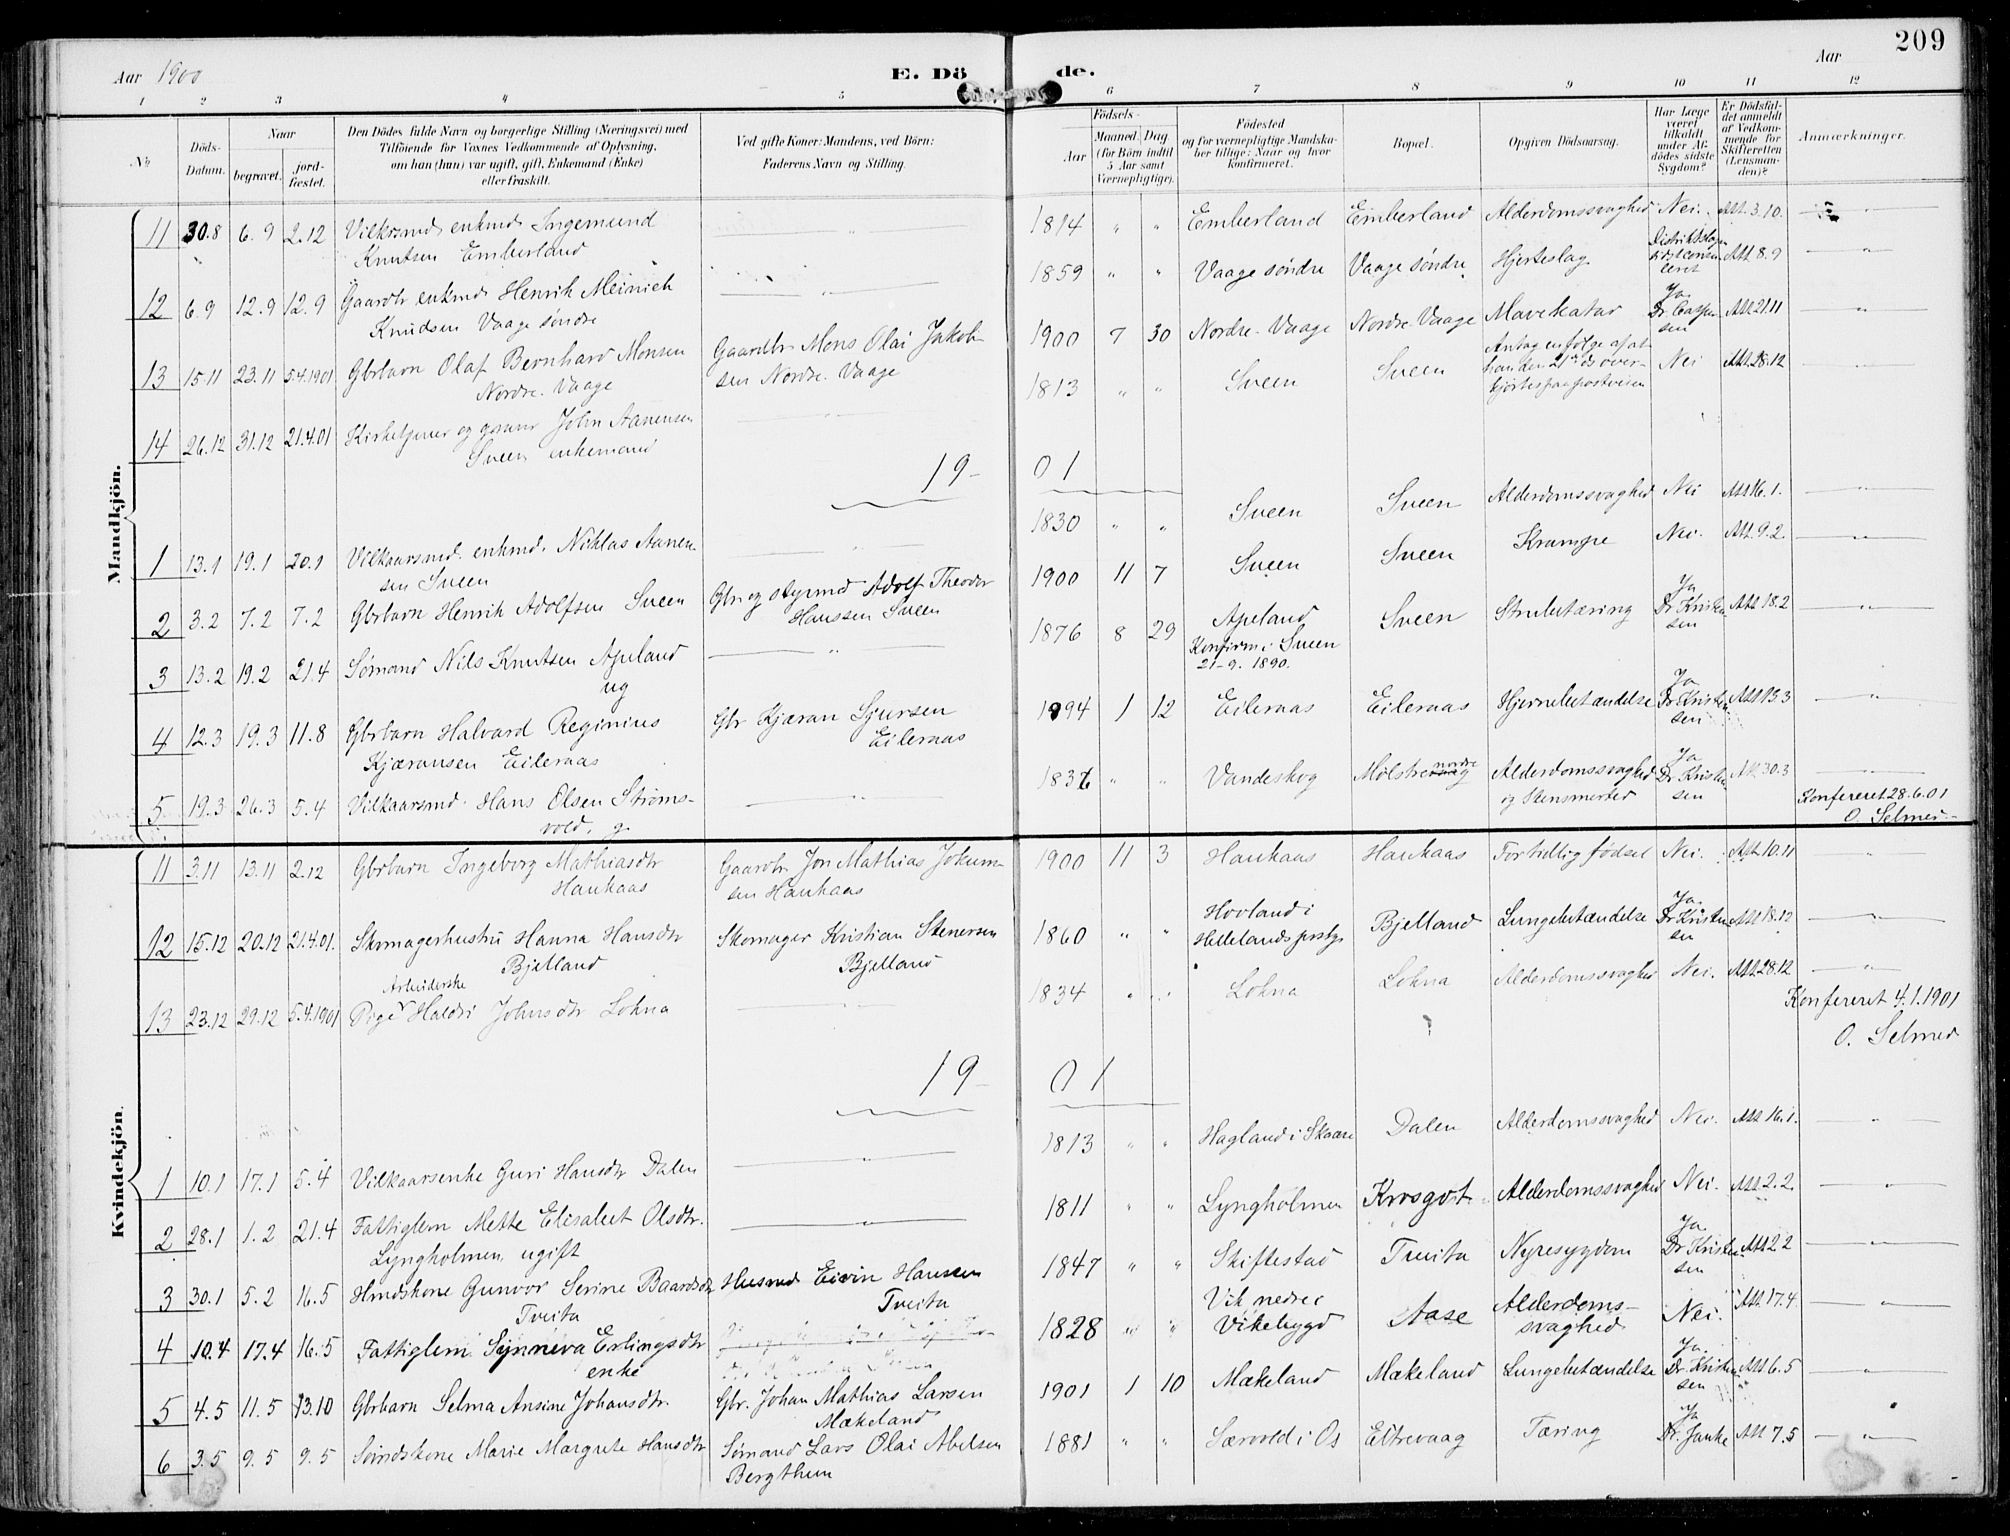 209
Aar 1900
E. Dö
de.
Aar
1 2 3 4 5 6 7 8 9 10 11 12
No
Döds-
Datum.
Naar
begravet.
jord-
fæstet.
Den Dödes fulde Navn og borgerlige Stilling (Næringsvei) med
Tilföiende for Voxnes Vedkommende af Oplysning,
om han (hun) var ugift, gift, Enkemand (Enke)
eller fraskilt.
Ved gifte Koner: Mandens, ved Börn:
Faderens Navn og Stilling.
Födsels-
Aar
Maaned. Dag.
(for Börn indtil
5 Aar samt
Værnepligtige).
Födested
og for værnepligtige Mandska-
ber tillige: Naar og hvor
konfirmeret.
Bopæl.
Opgiven Dödsaarsag.
Har Læge
været
tilkaldt
under Af-
dödes sidste
Sygdom?
Er Dödsfal-
det anmeldt
af Vedkom-
mende for
Skifteretten
(Lensman-
den)?
Anmærkninger.
Mandkjön.
11 30.8 6.9 2.12 Vilkrsmd enkmd Ingemund
Knutsen Emberland
1814 " " Emberland Emberland Alderdomssvaghed Nei. Att. 3.10.
12 6.9 12.9 12.9 Gaardbr enkmd Henrik Meinich
Knudsen Vaage söndre
1859 " " Vaage söndre Vaage söndre Hjerteslag Att 8.9
13 15.11 23.11 5.4.1901 Gbrbarn Olaf Bernhard Monsen
Nordre. Vaage
Gaardbr Mons Olai Jakob-
sen Nordre. Vaage
1900 7 30 Nordre. Vaage Nordre. Vaage Mavekatar Ja
Dr. Casper
sen
Att 21.11
14 26.12 31.12 21.4.01 Kirketjener og John Aanensen
Sveen enkemand
1813 " " Sveen Sveen Antag. en følge af at
han den 21de ds over-
paa postveien
Nei Att. 28.12
19-01
1 13.1 19.1 20.1 Vilkaarsmd. enkmd. Niklas Aanen-
sen Sveen
1830 " " Sveen Sveen Alderdomssvaghed Nei Att 16.1.
2 3.2 7.2 7.2 Gbrbarn Henrik Adolfsen Sveen
Gbr og styrmd Adolf Theodor
Hanssen Sveen
1900 11 7 Sveen Sveen Krampe Nei. Att. 9.2.
3 13.2 19.2 21.4 Sømand Nils Knutsen Apeland
ug
1876 8 29 Apeland
Konfirm. i Sveen
21-9. 1890.
Sveen Strubetæring Ja
Dr. Kristen
sen
Att 18.2
4 12.3 19.3 11.8 Gbrbarn Halvard Reginius
Kjæransen Eileraas
Gbr Kjæran Sjursen
Eileraas
1894 1 12 Eileraas Eileraas Hjernebetændelse Ja
Dr. Kristen
sen
Att 13.3
5 19.3 26.3 5.4 Vilkaarsmd. Hans Olsen Strøms-
vold. g.
1836 " " Vandeskog nordre Alderdomssvaghed
og Stensmerter
Ja
Dr. Kristen
sen
Att 30.3
Konfereret 28.6.01
O. Selmer
Kvindekjön.
11 3.11 13.11 2.12 Gbrbarn Ingeborg Mathiasdtr
Haukaas
Gaardbr. Jon Mathias Jokum-
sen Haukaas
1900 11 3 Haukaas Haukaas For tidlig fødsel Nei. Att. 10.11
12 15.12 20.12 21.4.01. Skomagerhustru Hanna Hansdtr
Bjelland
Skomager Kristian Stenersen
Bjelland
1860 " " Hovland i
Hellelands prstgj
Bjelland Lungebetændelse Ja.
Dr. Kristen
sen
Att 18.12
13 23.12 29.12 5.4.1901 Arbeiderske
Pige Haldri Johnsdtr Lohna
1834 " " Lohna Lohna Alderdomssvaghed Nei. Att. 28.12
Konfereret 4.1.1901
O. Selmer
19-01
1 10.1 17.1 5.4 Vilkaarsenke Guri Hansdtr Dalen
1813 " " Hagland i Skaare Dalen Alderdomssvaghed Nei. Att 16.1.
2 28.1 1.2 21.4 Fattiglem Mette Elisabet Olsdtr.
Lyngholmen, ugift
1811 " " Lyngholmen Krosgot Alderdomssvaghed Nei. Att 2.2.
3 30.1 5.2 16.5 Hmdskone Gunvor Serine Baardsdtr
Tveita
Husmd Eivin Hansen
Tveita
1847 " " Skiftestad Tveita Nyresygdom Ja
Dr Kristen
sen
Att 2.2
4 10.4 17.4 16.5 Fattiglem Synneva Erlingsdtr
enke
1828 " " Vik nedre i
Vikebygd
Aase Alderdoms-
svaghed
Nei. Att. 17.4.
5 4.5 11.5 13.10 Gbrbarn Selma Ansine Johansdtr.
Gbr. Johan Mathias Larsen
Mækeland
1901 1 10 Mækeland Mækeland Lungebetændelse Ja.
Dr. Kristen
sen
Att 6.5
6 3.5 9.5 9.5 Sömdskone Marie Margrete Hansdtr
Sømand Lars Olai Abelsen
Bergthun
1881 " " Særvold i Os Eltrevaag Tæring Ja
Dr. Janke
Att 7.5